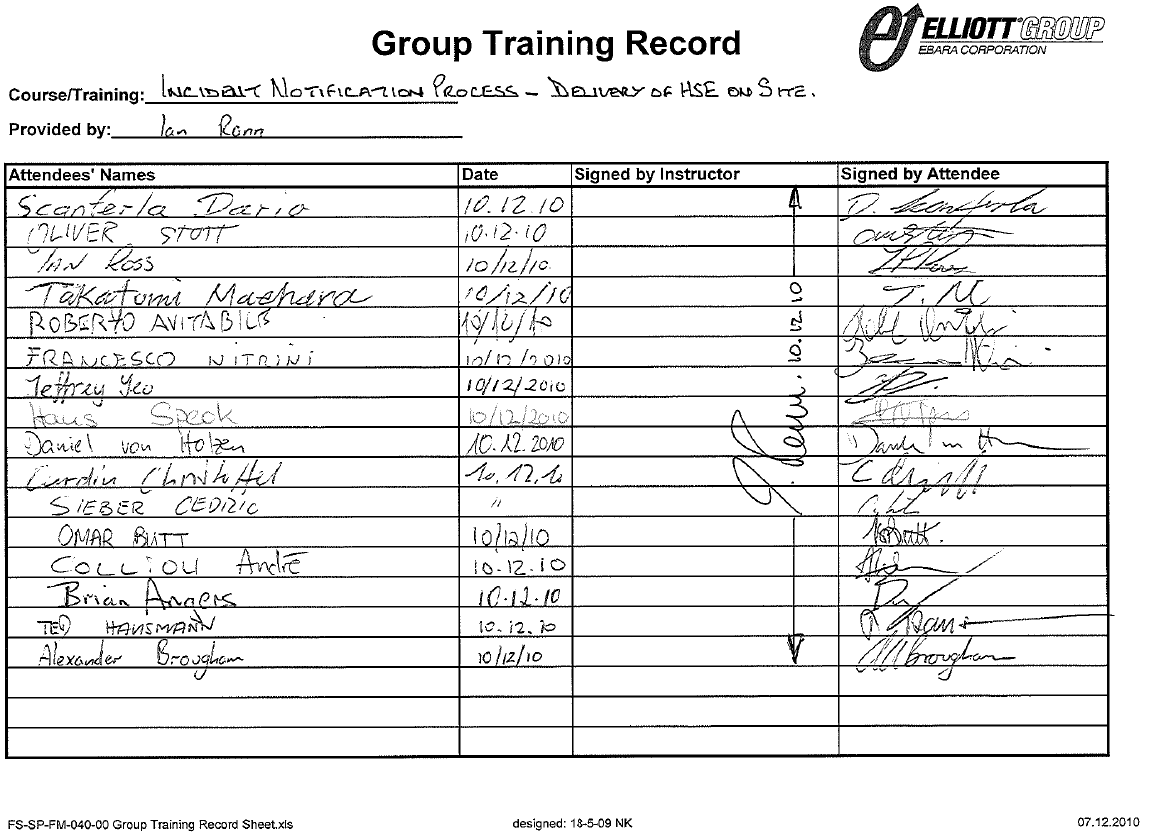 Group Training Record
ELLIOTT GROUP
EBARA CORPORATION
Course/Training: INCIDENT NOTIFICATION PROCESS - DELIVERY OF HSE ON SITE.
Provided by: Ian Rann
Attendees' Names Date Signed by Instructor Signed by Attendee
Scanferla Dario 10.12.10 D. Scanferla
OLIVER STOTT 10.12.10
IAN ROSS 10/12/10
Takatumi Maehara 10/12/10 T. M
ROBERTO AVITABILE 10/12/10
FRANCESCO NITRINI 10/12/2010
Jeffrey Yeo 10/12/2010
Haus Speck 10/12/2010
Daniel von Holzen 10.12.2010
Curdin Christoffel 10.12.10
SIEBER CEDRIC "
OMAR BUTT 10/12/10
COLLIOU André 10.12.10
Brian Angers 10.12.10
TED HAUSMANN 10.12.10
Alexander Brougham 10/12/10 Brougham
10.12.10
FS-SP-FM-040-00 Group Training Record Sheet.xls designed: 18-5-09 NK 07.12.2010